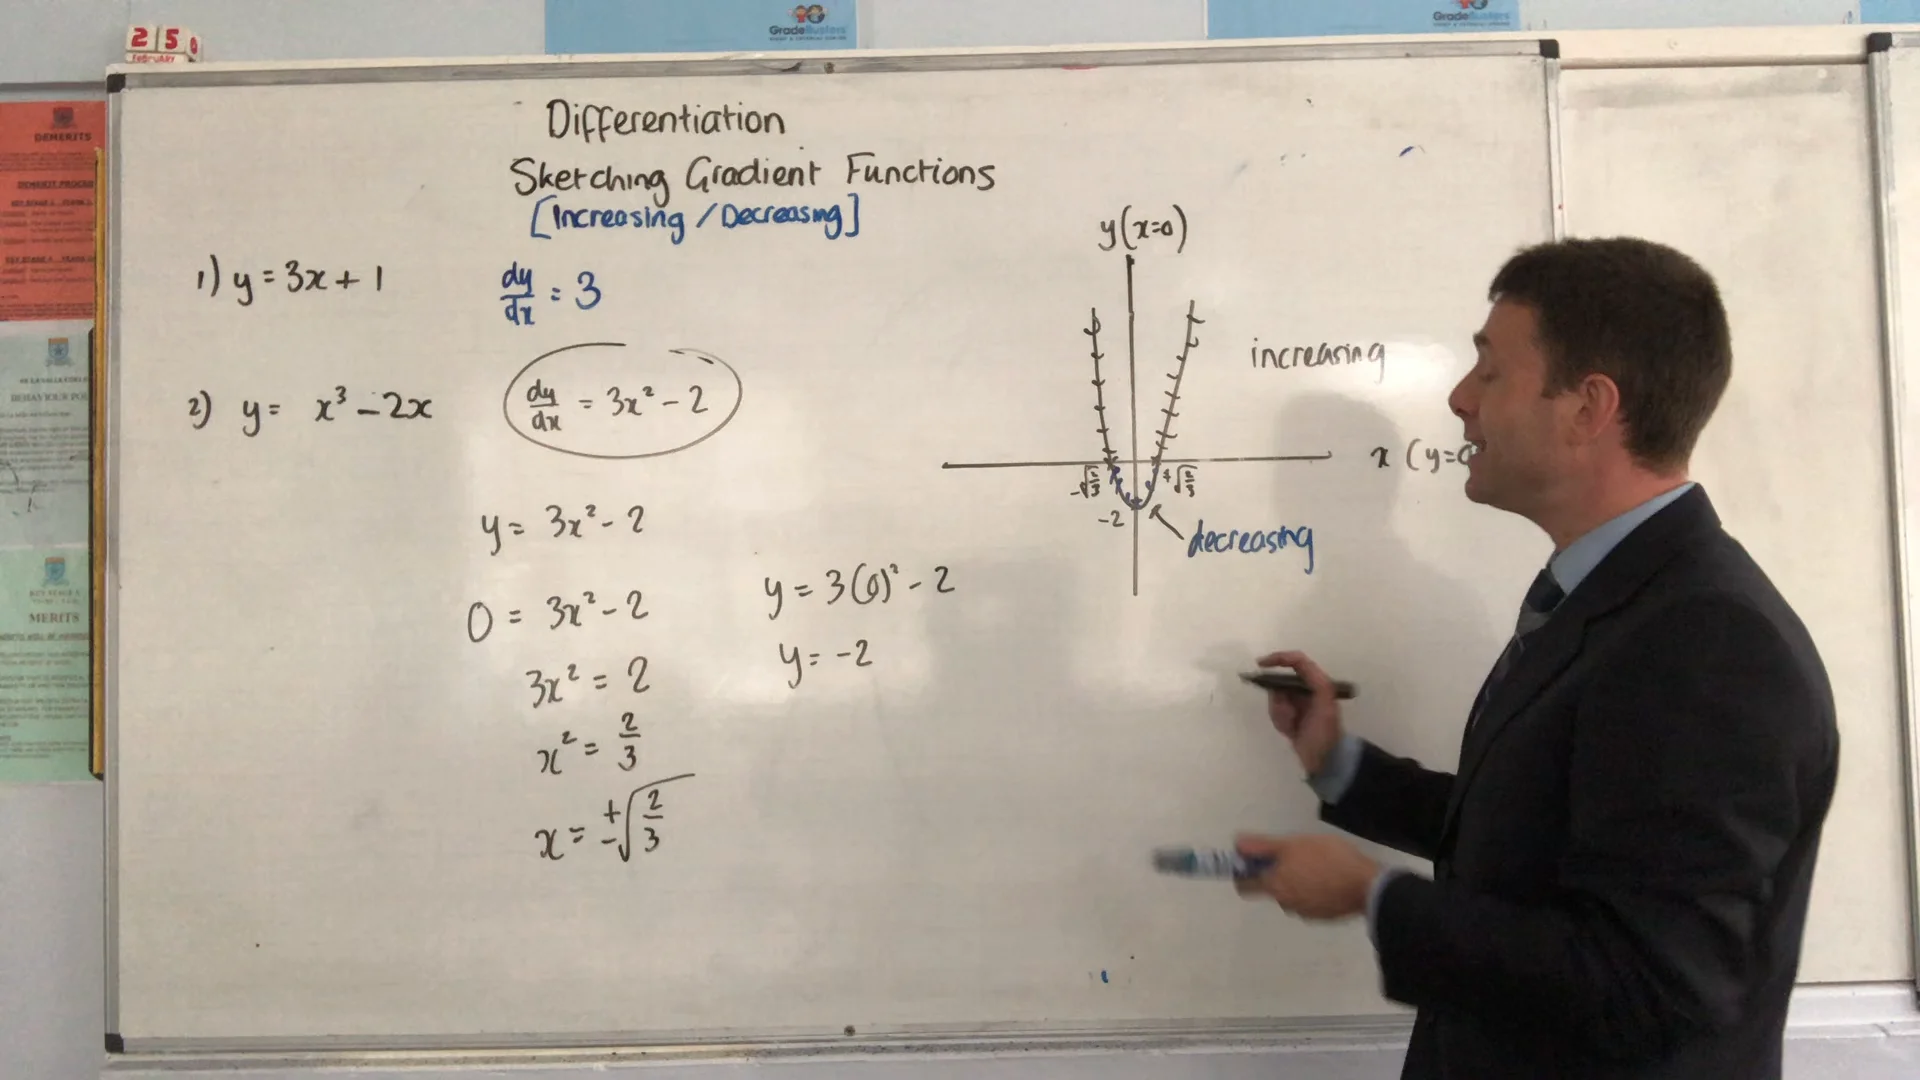 25
FEBRUARY
GradeBusters
GradeBusters
DEMERITS
MERITS
Differentiation
Sketching Gradient Functions
[Increasing / Decreasing]
1) y = 3x + 1
dy/dx = 3
2) y = x³ - 2x
dy/dx = 3x² - 2
y = 3x² - 2
0 = 3x² - 2
3x² = 2
x² = 2/3
x = ±√2/3
y = 3(0)² - 2
y = -2
y (x=0)
increasing
x (y=0
-√2/3
+√2/3
-2
decreasing